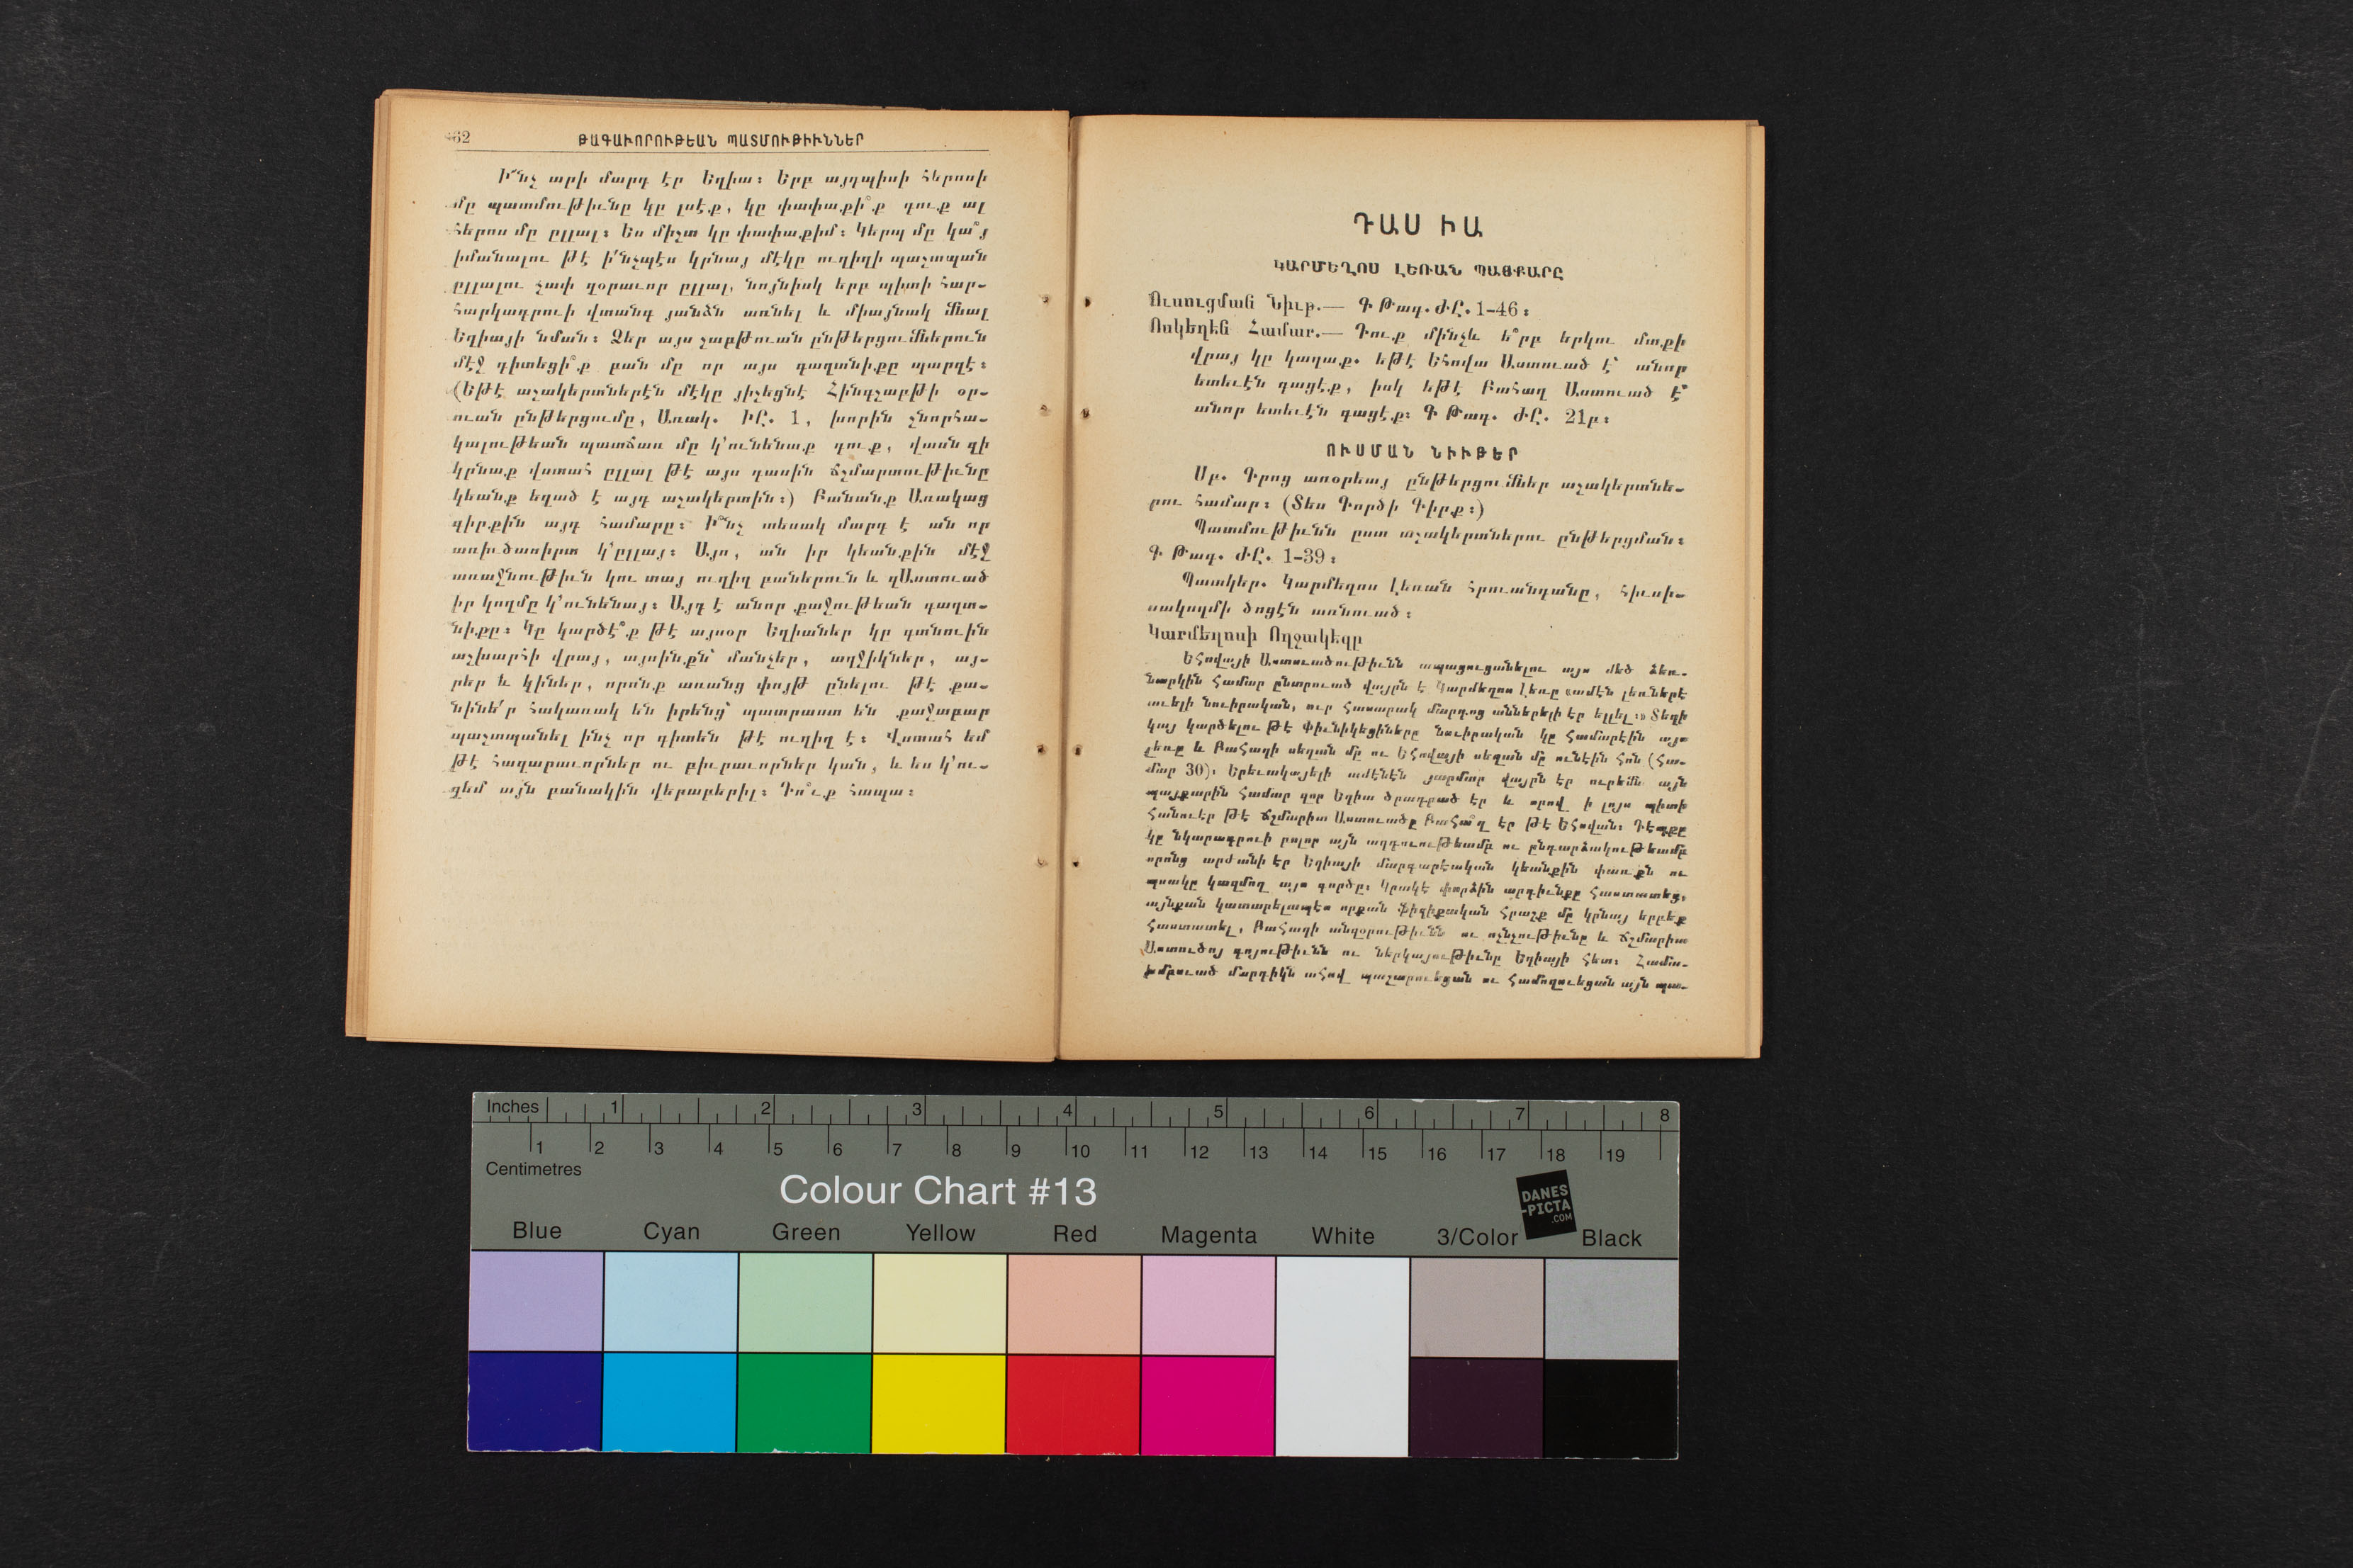 62
ԹԱԳԱՒՈՐՈՒԹԵԱՆ ՊԱՏՄՈՒԹԻՒՆՆԵՐ
Ի՜նչ արի մարդ էր Եղիա։ Երբ այդպիսի հերոսի
մը պատմութիւնը կը լսէք, կը փափաքի՞ք դուք ալ
հերոս մը ըլլալ։ Ես միշտ կը փափաքիմ։ Կերպ մը կա՞յ
իմանալու թէ ի՛նչպէս կրնայ մէկը ուղիղի պաշտպան
ըլլալու չափ զօրաւոր ըլլալ, նոյնիսկ երբ պիտի հար-
հարկադրուի վտանգ յանձն առնել և միայնակ մնալ
Եղիայի նման։ Ձեր այս շաբթուան ընթերցումներուն
մէջ գիտեցի՞ք բան մը որ այս գաղտնիքը պարզէ։
(Եթէ աշակերտներէն մէկը յիշեցնէ Հինգշաբթի օր-
ուան ընթերցումը, Առակ. ԻԸ. 1, խորին շնորհա-
կալութեան պատճառ մը կ՚ունենաք դուք, վասն զի
կրնաք վստահ ըլլալ թէ այս դասին ճշմարտութիւնը
կեանք եղած է այդ աշակերտին։) Բանանք Առակաց
գիրքին այդ համարը։ Ի՞նչ տեսակ մարդ է ան որ
առիւծասիրտ կ՚ըլլայ։ Այո, ան իր կեանքին մէջ
առաջնութիւն կու տայ ուղիղ բաներուն և զԱստուած
իր կողմը կ՚ունենայ։ Այդ է անոր քաջութեան գաղտ-
նիքը։ Կը կարծէ՞ք թէ այսօր Եղիաներ կը գտնուին
աշխարհի վրայ, այսինքն՝ մանչեր, աղջիկներ, այ-
րեր և կիներ, որոնք առանց փոյթ ընելու թէ քա-
նինե՛ր հակառակ են իրենց՝ պատրաստ են քաջաբար
պաշտպանել ինչ որ գիտեն թէ ուղիղ է։ Վստահ եմ
թէ հազարաւորներ ու բիւրաւորներ կան, և ես կ՚ու-
զեմ այն բանակին վերաբերիլ։ Դո՞ւք հապա։
ԴԱՍ ԻԱ
ԿԱՐՄԵՂՈՍ ԼԵՌԱՆ ՊԱՅՔԱՐԸ
Ուսուցման Նիւթ.— Գ Թագ. ԺԸ. 1-46։
Ոսկեղեն Համար.— Դուք մինչև ե՞րբ երկու մտքի
վրայ կը կաղաք. եթէ Եհովա Աստուած է՝ անոր
ետեւէն գացէք, իսկ եթէ Բահաղ Աստուած է՝
անոր ետեւէն գացէք։ Գ Թագ. ԺԸ. 21բ։
ՈՒՍՄԱՆ ՆԻՒԹԵՐ
Սբ. Գրոց առօրեայ ընթերցումներ աշակերտնե-
րու համար։ (Տես Գործի Գիրք։)
Պատմութիւնն ըստ աշակերտներու ընթերցման։
Գ Թագ. ԺԸ. 1-39։
Պատկեր. Կարմեղոս լեռան հրուանդանը, հիւսի-
սակողմի ծոցէն առնուած։
Կարմեղոսի Ողջակեզը
Եհովայի Աստուածութիւնն ապացուցանելու այս մեծ ձեռ-
նարկին համար ընտրուած վայրն է Կարմեղոս լեռը «ամէն լեռներէ
աւելի նուիրական, ուր հասարակ մարդոց աններելի էր ելլել։» Տեղի
կայ կարծելու թէ Փիւնիկեցիները նուիրական կը համարէին այս
լեռը և Բահաղի սեղան մը ու Եհովայի սեղան մը ունէին հոն (Հա-
մար 30)։ Երեւակայելի ամէնէն յարմար վայրն էր ուրեմն այն
պայքարին համար զոր Եղիա ծրագրած էր և որով ի լոյս պիտի
հանուէր թէ ճշմարիտ Աստուածը Բահա՞ղ էր թէ Եհովան։ Դէպքը
կը նկարագրուի բոլոր այն ազդուութեամբ ու ընդարձակութեամբ
որոնց արժանի էր Եղիայի մարգարէական կեանքին փառքն ու
պսակը կազմող այս գործը։ Կրակէ փորձին արդիւնքը հաստատեց,
այնքան կատարելապէս որքան ֆիզիքական հրաշք մը կրնայ երբեք
հաստատել, Բահաղի անզօրութիւնն ու ոչնչութիւնը և ճշմարիտ
Աստուծոյ գոյութիւնն ու ներկայութիւնը Եղիայի հետ։ Համա-
խմբուած մարդիկն ահով պաշարուեցան ու համոզուեցան այն պա-
Inches 1 2 3 4 5 6 7 8
1 2 3 4 5 6 7 8 9 10 11 12 13 14 15 16 17 18 19
Centimetres
Colour Chart #13
DANES
-PICTA
.COM
Blue Cyan Green Yellow Red Magenta White 3/Color Black